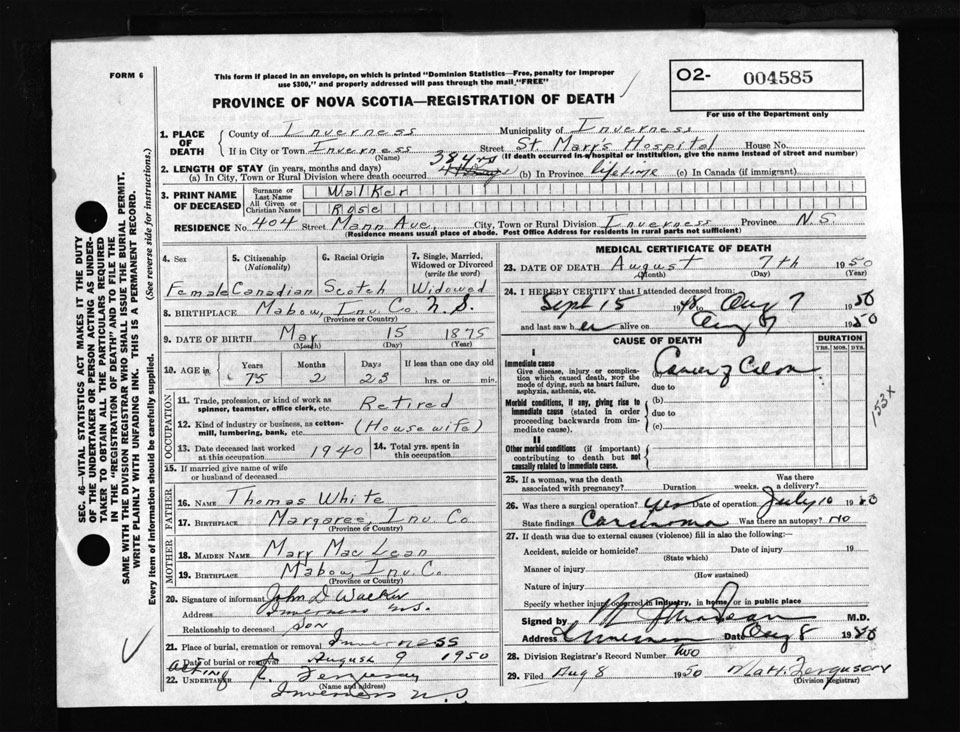 FORM 6
This form if placed in an envelope, on which is printed "Dominion Statistics—Free, penalty for improper
use $300," and properly addressed will pass through the mail "FREE"
O2- 004585
For use of the Department only
PROVINCE OF NOVA SCOTIA—REGISTRATION OF DEATH
1. PLACE OF DEATH
County of Inverness Municipality of Inverness
If in City or Town Inverness Street St. Mary's Hospital House No.
(Name) (If death occurred in a hospital or institution, give the name instead of street and number)
2. LENGTH OF STAY (in years, months and days) 38 yrs
(a) In City, Town or Rural Division where death occurred (b) In Province lifetime (c) In Canada (if immigrant)
3. PRINT NAME OF DECEASED
Surname or Last Name Walker
All Given or Christian Names Rose
RESIDENCE No. 404 Street Mann Ave, City, Town or Rural Division Inverness Province N.S.
(Residence means usual place of abode. Post Office Address for residents in rural parts not sufficient)
4. Sex 5. Citizenship (Nationality) 6. Racial Origin 7. Single, Married, Widowed or Divorced (write the word)
Female Canadian Scotch Widowed
8. BIRTHPLACE Mabou, Inv. Co. N.S.
(Province or Country)
9. DATE OF BIRTH Mar 15 1875
(Month) (Day) (Year)
10. AGE in Years Months Days If less than one day old
75 2 23 hrs. or min.
OCCUPATION
11. Trade, profession, or kind of work as
spinner, teamster, office clerk, etc. Retired
12. Kind of industry or business, as cotton-
mill, lumbering, bank, etc. (Housewife)
13. Date deceased last worked
at this occupation 1940
14. Total yrs. spent in
this occupation
15. If married give name of wife
or husband of deceased
FATHER
16. NAME Thomas White
17. BIRTHPLACE Margaree, Inv. Co.
(Province or Country)
MOTHER
18. MAIDEN NAME Mary MacLean
19. BIRTHPLACE Mabou, Inv. Co.
(Province or Country)
20. Signature of informant John D Walker
Address Inverness N.S.
Relationship to deceased son
21. Place of burial, cremation or removal Inverness
Date of burial or removal August 9 1950
acting
22. UNDERTAKER Ferguson
(Name and address)
Inverness N.S
MEDICAL CERTIFICATE OF DEATH
23. DATE OF DEATH August 7th 1950
(Month) (Day) (Year)
24. I HEREBY CERTIFY that I attended deceased from:
Sept 15 1948 to Aug 7 1950
and last saw her alive on Aug 7 1950
CAUSE OF DEATH
DURATION
YRS. MOS. DYS.
I
Immediate cause
Give disease, injury or complica-
tion which caused death, not the
mode of dying, such as heart failure,
asphyxia, asthenia, etc.
Cancer of Colon
due to
Morbid conditions, if any, giving rise to
immediate cause (stated in order
proceeding backwards from im-
mediate cause).
(b)
due to
(c)
II
Other morbid conditions (if important)
contributing to death but not
causally related to immediate cause.
153x
25. If a woman, was the death
associated with pregnancy? Duration weeks. Was there
a delivery?
26. Was there a surgical operation? yes Date of operation July 10 19
State findings Carcinoma Was there an autopsy? No
27. If death was due to external causes (violence) fill in also the following:
Accident, suicide or homicide? Date of injury 19
(State which)
Manner of injury
(How sustained)
Nature of injury
Specify whether injury occurred in industry, in home, or in public place
Signed by M.D.
Address Inverness Date Aug 8 19
28. Division Registrar's Record Number two
29. Filed Aug 8 1950 Matt. Ferguson
(Division Registrar)
SEC. 46—VITAL STATISTICS ACT MAKES IT THE DUTY
OF THE UNDERTAKER OR PERSON ACTING AS UNDER-
TAKER TO OBTAIN ALL THE PARTICULARS REQUIRED
IN THE "REGISTRATION OF DEATH" AND TO FILE THE
SAME WITH THE DIVISION REGISTRAR WHO SHALL ISSUE THE BURIAL PERMIT.
WRITE PLAINLY WITH UNFADING INK. THIS IS A PERMANENT RECORD.
Every item of information should be carefully supplied. (See reverse side for instructions.)